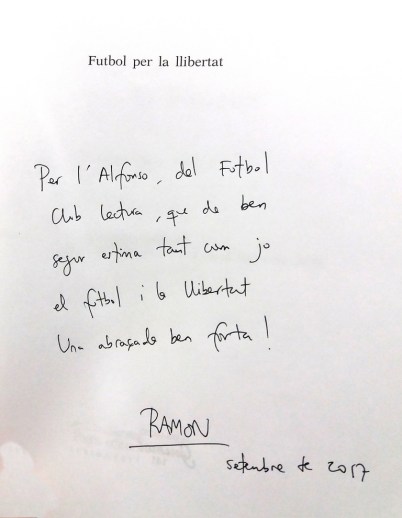 Futbol per la llibertat
Per l'Alfonso, del Futbol
Club Lectura, que de ben
segur estima tant com jo
el futbol i la llibertat
Una abraçada ben forta!
RAMON
setembre de 2017